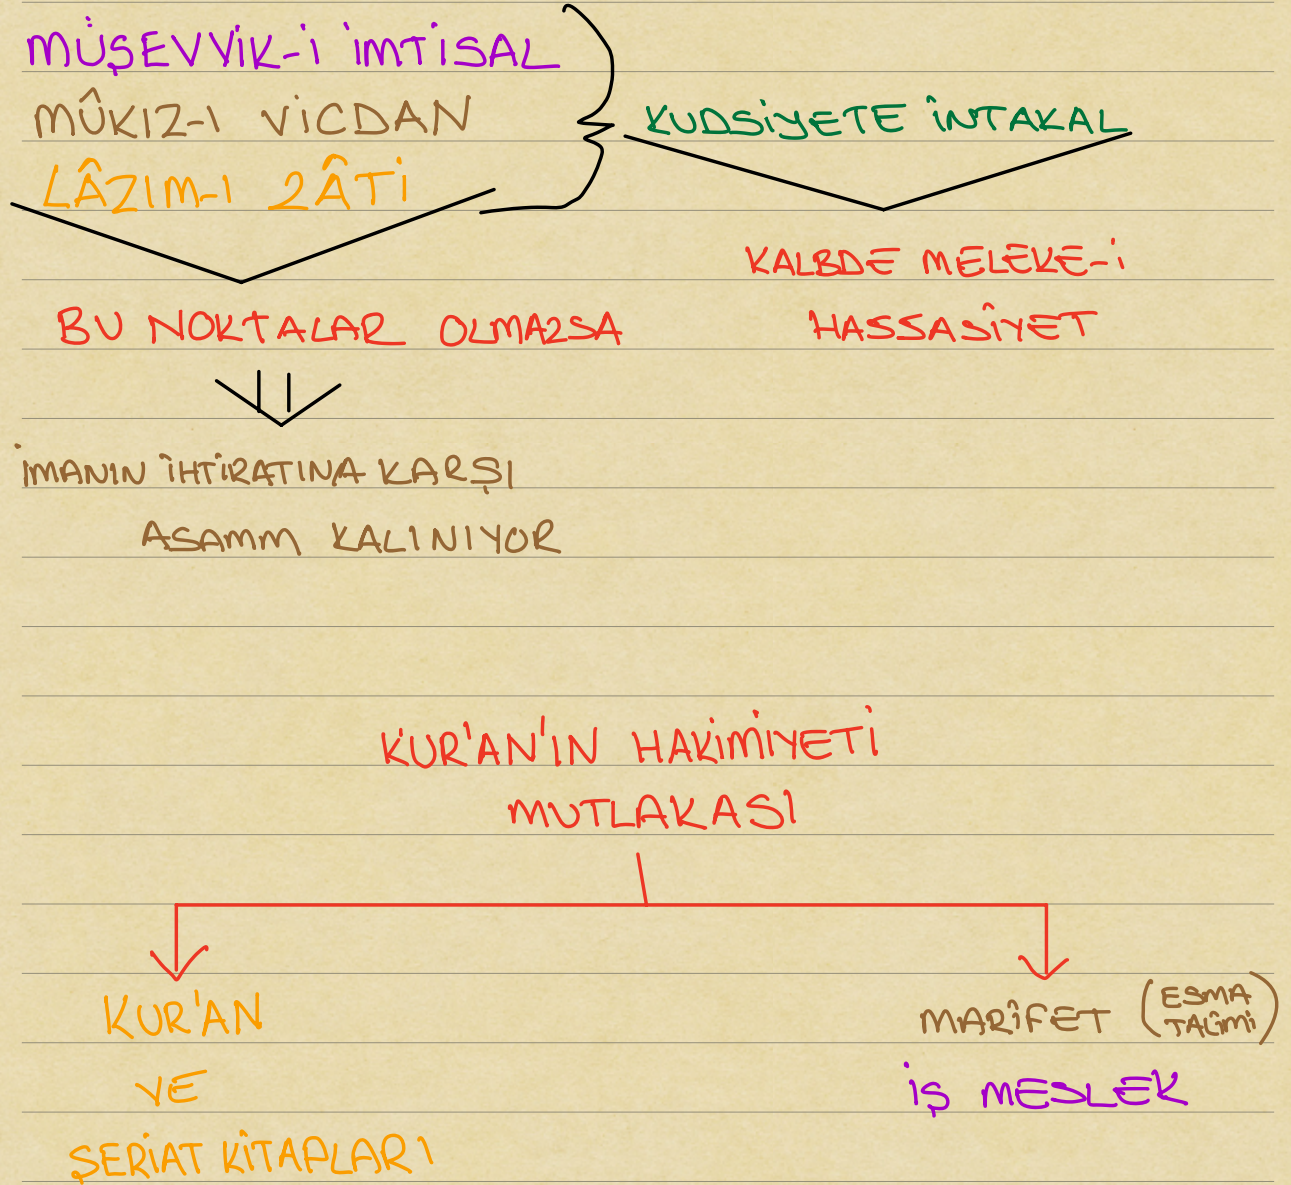 MÜŞEVVİK-İ İMTİSAL
MÛKIZ-I VİCDAN
LÂZIM-I ZÂTİ
KUDSİYETE İNTAKAL
BU NOKTALAR OLMAZSA
KALBDE MELEKE-İ
HASSASİYET
İMANIN İHTİRATINA KARŞI
ASAMM KALINIYOR
KUR'AN'IN HAKİMİYETİ
MUTLAKASI
KUR'AN
VE
ŞERİAT KİTAPLARI
MARİFET (ESMA
TALİMİ)
İŞ MESLEK